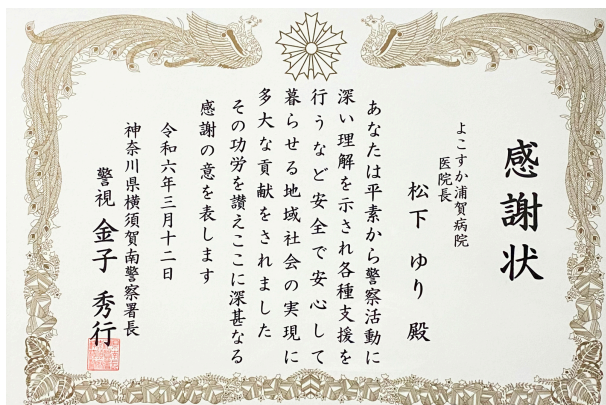 感謝状
よこすか浦賀病院
医院長
松下 ゆり 殿
あなたは平素から警察活動に
深い理解を示され各種支援を
行うなど安全で安心して
暮らせる地域社会の実現に
多大な貢献をされました
その功労を讃えここに深甚なる
感謝の意を表します
令和六年三月十二日
神奈川県横須賀南警察署長
警視 金子 秀行